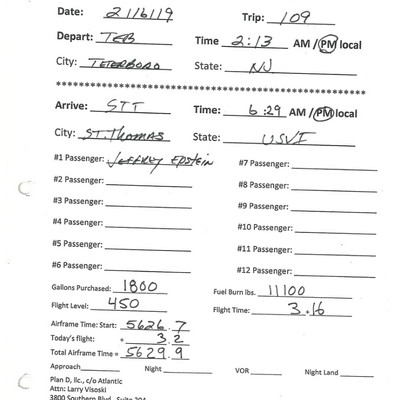 Date: 2/16/19 Trip: 109
Depart: TEB Time 2:13 AM / PM local
City: TETERBORO State: NJ
**************************************************
Arrive: STT Time: 6:29 AM / PM local
City: ST. THOMAS State: USVI
#1 Passenger: JEFFREY EPSTEIN #7 Passenger:
#2 Passenger: #8 Passenger:
#3 Passenger: #9 Passenger:
#4 Passenger: #10 Passenger:
#5 Passenger: #11 Passenger:
#6 Passenger: #12 Passenger:
Gallons Purchased: 1800 Fuel Burn lbs. 11100
Flight Level: 450 Flight Time: 3.16
Airframe Time: Start: 5626.7
Today's flight: + 3.2
Total Airframe Time = 5629.9
Approach Night VOR Night Land
Plan D, llc., c/o Atlantic
Attn: Larry Visoski
3800 Southern Blvd., Suite 204